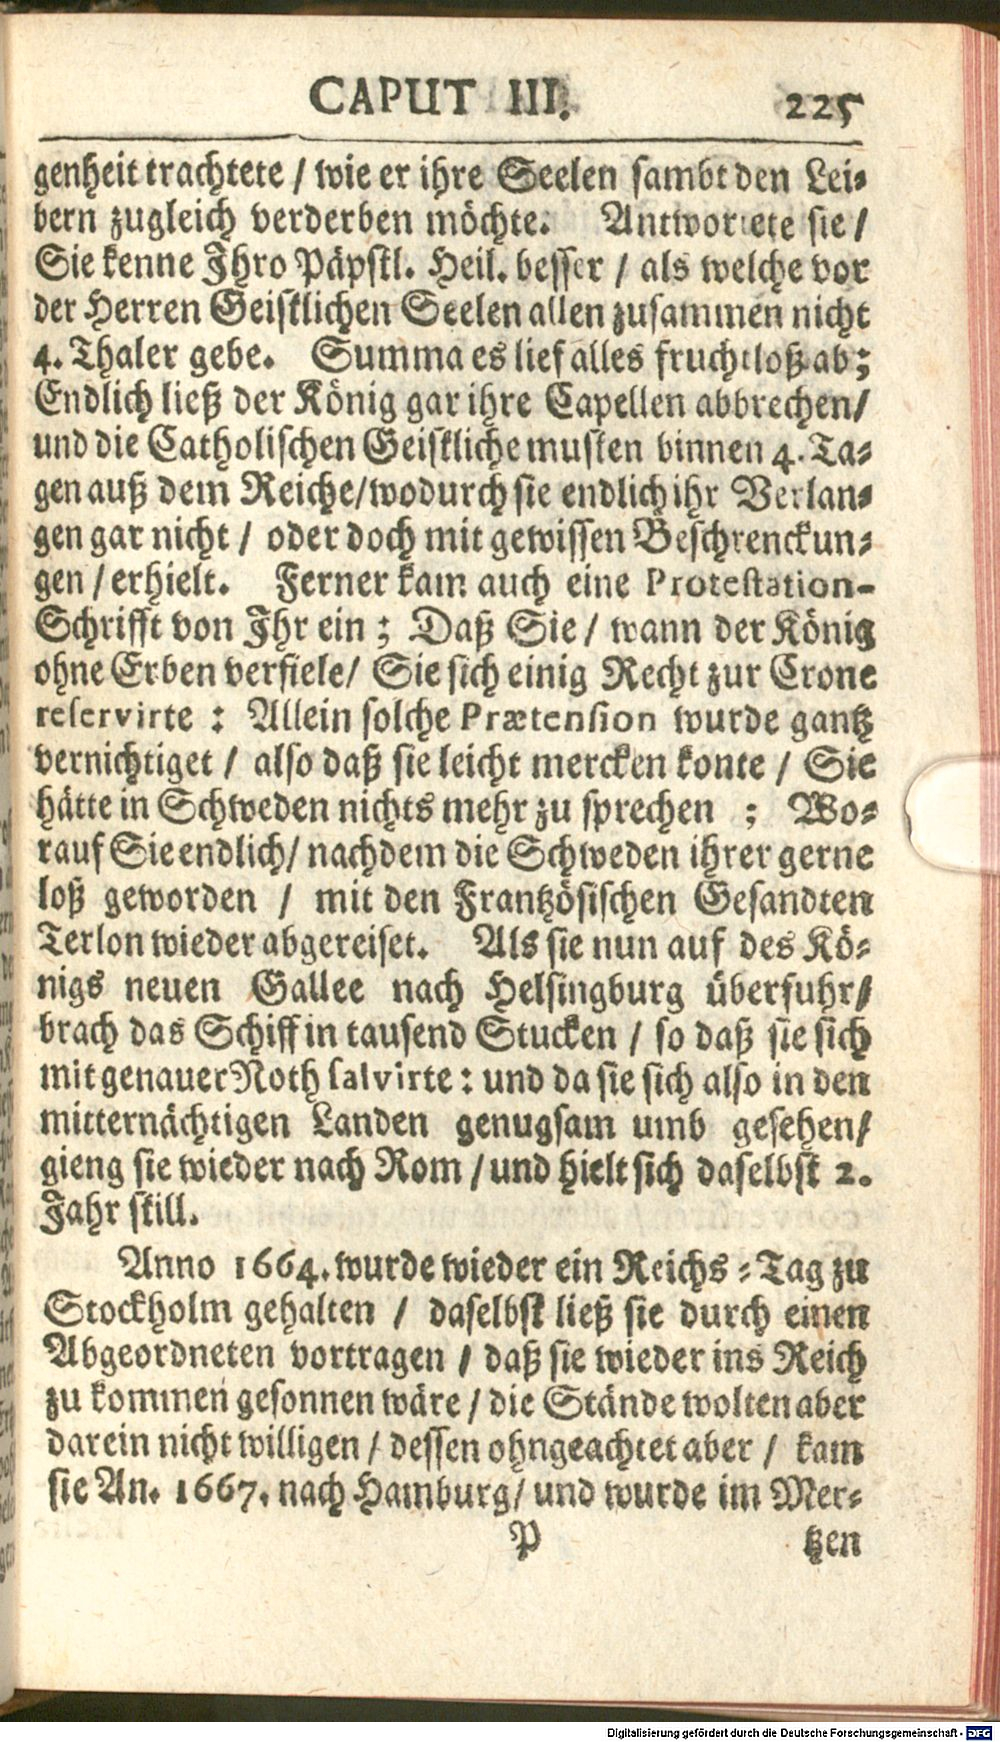 CAPUT III. 225
genheit trachtete / wie er ihre Seelen sambt den Lei-
bern zugleich verderben möchte. Antwortete sie /
Sie kenne Ihro Päpstl. Heil. besser / als welche vor
der Herren Geistlichen Seelen allen zusammen nicht
4. Thaler gebe. Summa es lief alles fruchtloß ab;
Endlich ließ der König gar ihre Capellen abbrechen/
und die Catholischen Geistliche musten binnen 4. Ta-
gen auß dem Reiche/wodurch sie endlich ihr Verlan-
gen gar nicht / oder doch mit gewissen Beschrenckun-
gen / erhielt. Ferner kam auch eine Protestation-
Schrifft von Ihr ein; Daß Sie / wann der König
ohne Erben verfiele/ Sie sich einig Recht zur Crone
reservirte : Allein solche Prætension wurde gantz
vernichtiget / also daß sie leicht mercken konte / Sie
hätte in Schweden nichts mehr zu sprechen ; Wo-
rauf Sie endlich/ nachdem die Schweden ihrer gerne
loß geworden / mit den Frantzösischen Gesandten
Terlon wieder abgereiset. Als sie nun auf des Kö-
nigs neuen Gallee nach Helsingburg überfuhr/
brach das Schiff in tausend Stucken / so daß sie sich
mit genauer Noth salvirte: und da sie sich also in den
mitternächtigen Landen genugsam umb gesehen/
gieng sie wieder nach Rom / und hielt sich daselbst 2.
Jahr still.
Anno 1664. wurde wieder ein Reichs-Tag zu
Stockholm gehalten / daselbst ließ sie durch einen
Abgeordneten vortragen / daß sie wieder ins Reich
zu kommen gesonnen wäre / die Stände wolten aber
darein nicht willigen / dessen ohngeachtet aber / kam
sie An. 1667. nach Hamburg/ und wurde im Mer-
P tzen
Digitalisierung gefördert durch die Deutsche Forschungsgemeinschaft - DFG